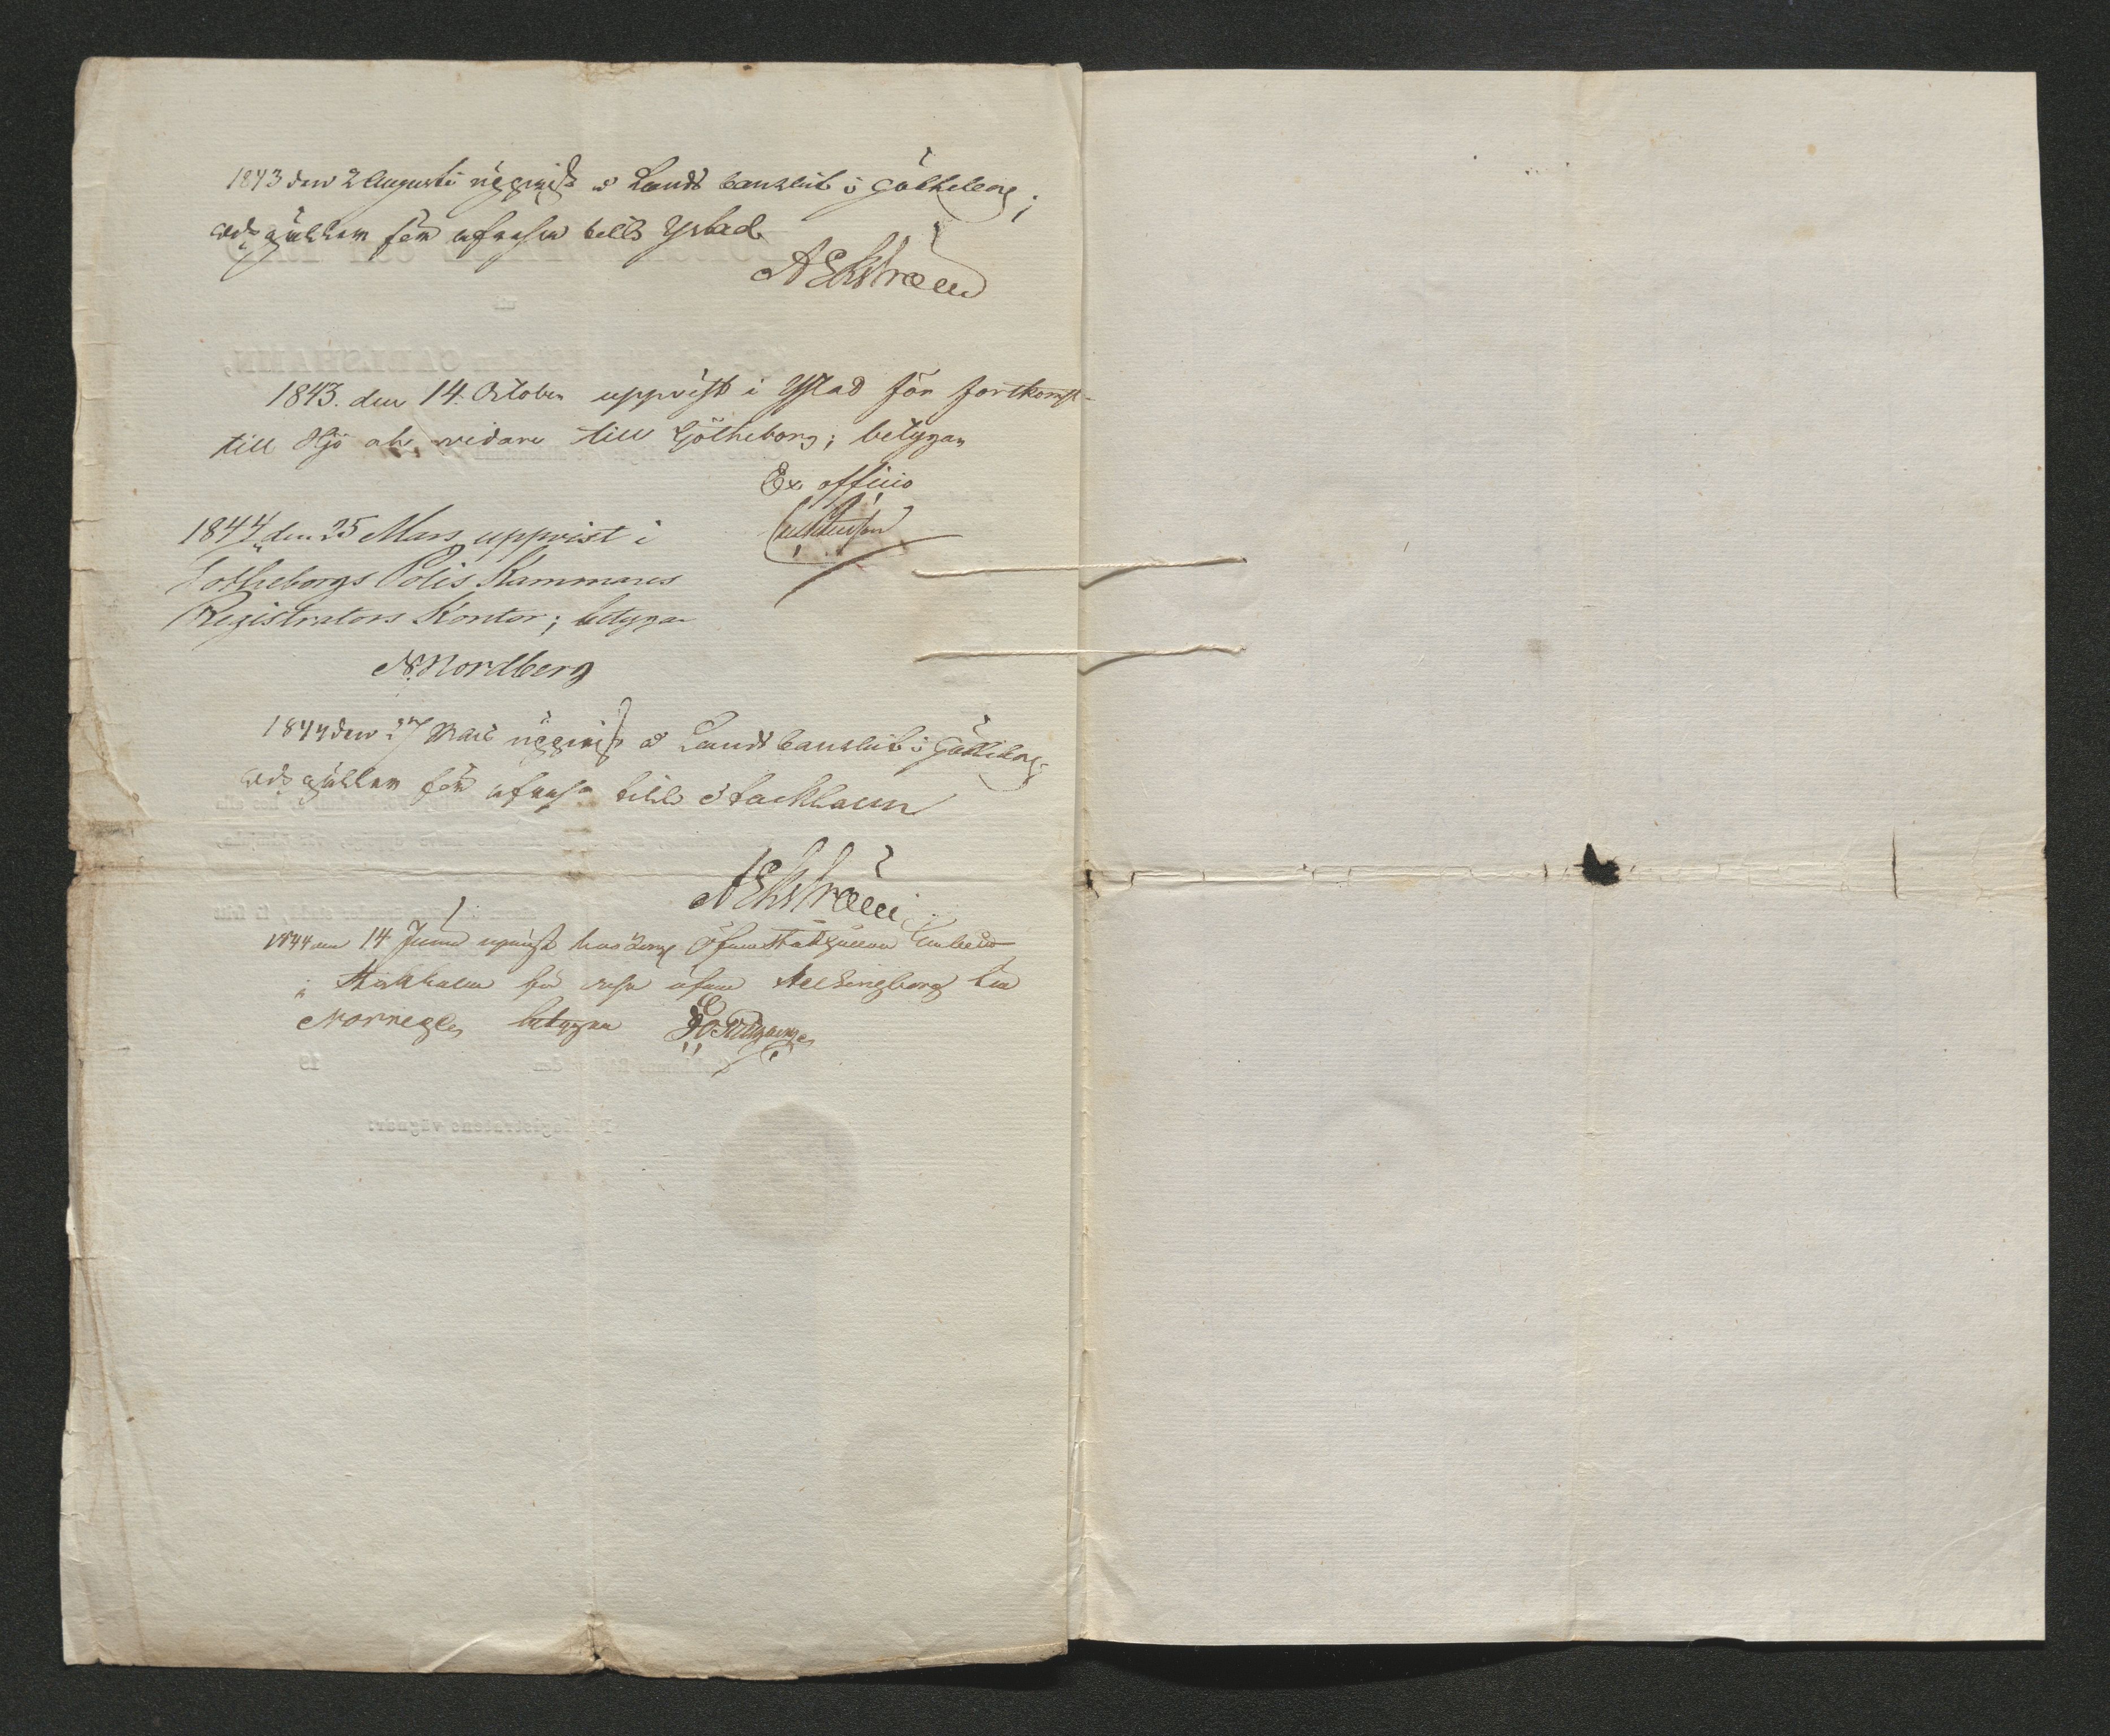 1843 den 2 Augusti uppvist å Lands Cansliet i Götheborg;
och gäller för afresa till Ystad
A Ekström
1843. den 14. October uppvist i Ystad för fortkomst
till Hjo och vidare till Götheborg; betygar
Ex officio
1844 den 25 Mars uppvist i
Götheborgs Polis Kammares
Registrators Kontor; betygar
N. Nordberg
1844 den 27 Mars uppvist å Lands Cansliet i Götheborg
och gäller för afresa till Stockholm
A Ekström
1844 den 14 Juni uppvist hos Kongl Öfverståthållare Embetet
i Stockholm för resa öfver Helsingborg till
Norrige, betygar